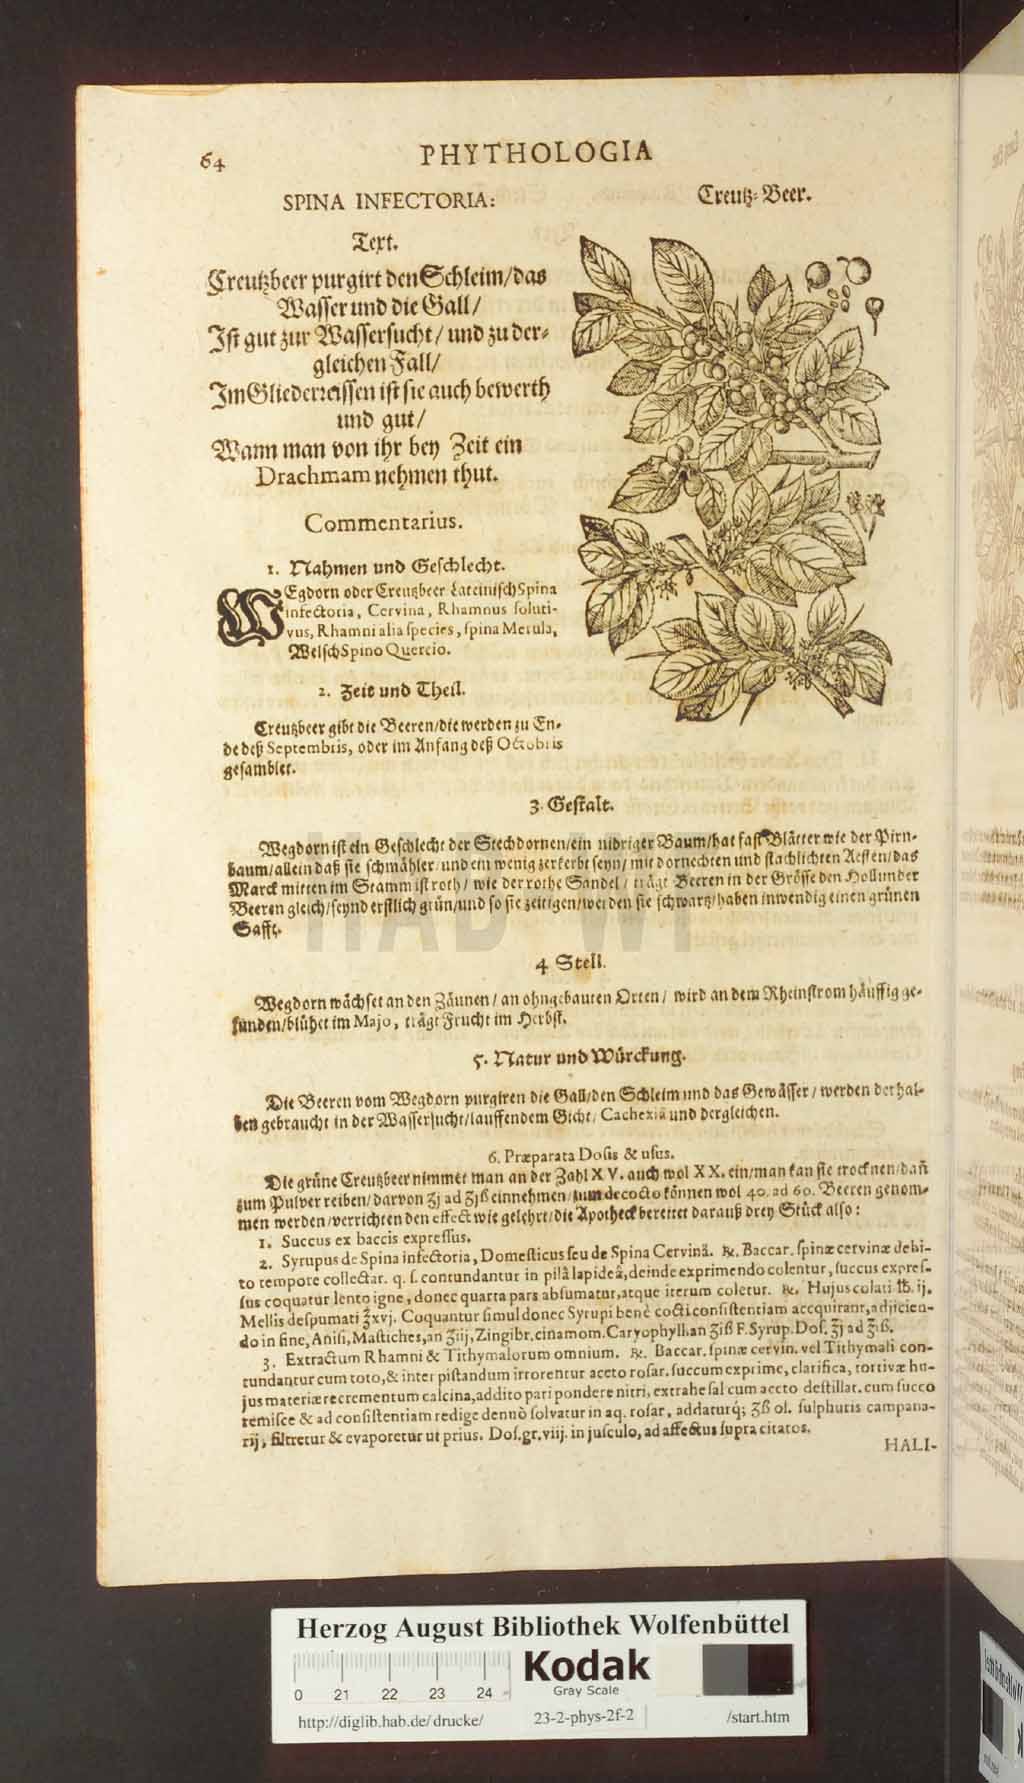 64
PHYTHOLOGIA
SPINA INFECTORIA:
Creutz-Beer.
Text.
Creutzbeer purgirt den Schleim/das
Wasser und die Gall/
Ist gut zur Wassersucht/ und zu der-
gleichen Fall/
Im Gliederreissen ist sie auch bewerth
und gut/
Wann man von ihr bey Zeit ein
Drachmam nehmen thut.
Commentarius.
1. Nahmen und Geschlecht.
WEgdorn oder Creutzbeer Lateinisch Spina
infectoria, Cervina, Rhamnus soluti-
vus, Rhamni alia species, spina Merula,
Welsch Spino Quercio.
2. Zeit und Theil.
Creutzbeer gibt die Beeren/die werden zu En-
de deß Septembris, oder im Anfang deß Octobris
gesamblet.
3. Gestalt.
Wegdorn ist ein Geschlecht der Stechdornen/ein nidriger Baum/hat fast Blätter wie der Pirn-
baum/allein daß sie schmähler/und ein wenig zerkerbt seyn/ mit dornechten und stachlichten Aesten/das
Marck mitten im Stamm ist roth/ wie der rothe Sandel/ trägt Beeren in der Grösse den Hollunder
Beeren gleich/seynd erstlich grün/und so sie zeitigen/werden sie schwartz/haben inwendig einen grünen
Safft.
4 Stell.
Wegdorn wächset an den Zäunen/ an ohngebauten Orten/ wird an dem Rheinstrom häuffig ge-
funden/blühet im Majo, trägt Frucht im Herbst.
5. Natur und Würckung.
Die Beeren vom Wegdorn purgiren die Gall/den Schleim und das Gewässer/ werden derhal-
ben gebraucht in der Wassersucht/lauffendem Gicht/ Cachexiâ und dergleichen.
6. Præparata Dosis & usus.
Die grüne Creutzbeer nimmet man an der Zahl XV. auch wol XX. ein/man kan sie trocknen/dañ
zum Pulver reiben/darvon ʒj ad ʒjß einnehmen/zum decocto können wol 40. ad 60. Beeren genom-
men werden/verrichten den effect wie gelehrt/die Apotheck bereitet darauß drey Stück also:
1. Succus ex baccis expressus.
2. Syrupus de Spina infectoria, Domesticus seu de Spina Cervinâ. ℞. Baccar. spinæ cervinæ debi-
to tempore collectar. q. s. contundantur in pilâ lapideâ, deinde exprimendo colentur, succus expres-
sus coquatur lento igne, donec quarta pars absumatur, atque iterum coletur. ℞. Hujus colati ℔. ij.
Mellis despumati ℥xvj. Coquantur simul donec Syrupi benè cocti consistentiam accquirant, adjicien-
do in fine, Anisi, Mastiches, an ʒiij, Zingibr. cinamom. Caryophyll. an ʒiß F. Syrup. Dos. ℥j ad ℥iß.
3. Extractum Rhamni & Tithymalorum omnium. ℞. Baccar. spinæ cervin. vel Tithymali con-
tundantur cum toto, & inter pistandum irrorentur aceto rosar. succum exprime, clarifica, tortivæ hu-
jus materiæ recrementum calcina, addito pari pondere nitri, extrahe sal cum aceto destillat. cum succo
remisce & ad consistentiam redige dennò solvatur in aq. rosar, addaturq́; ʒß ol. sulphuris campana-
rij, filtretur & evaporetur ut prius. Dos. gr. viij. in jusculo, ad affectus supra citatos.
HALI-
HAB WF
Herzog August Bibliothek Wolfenbüttel
0 21 22 23 24
Kodak
Gray Scale
http://diglib.hab.de/drucke/ 23-2-phys-2f-2 /start.htm